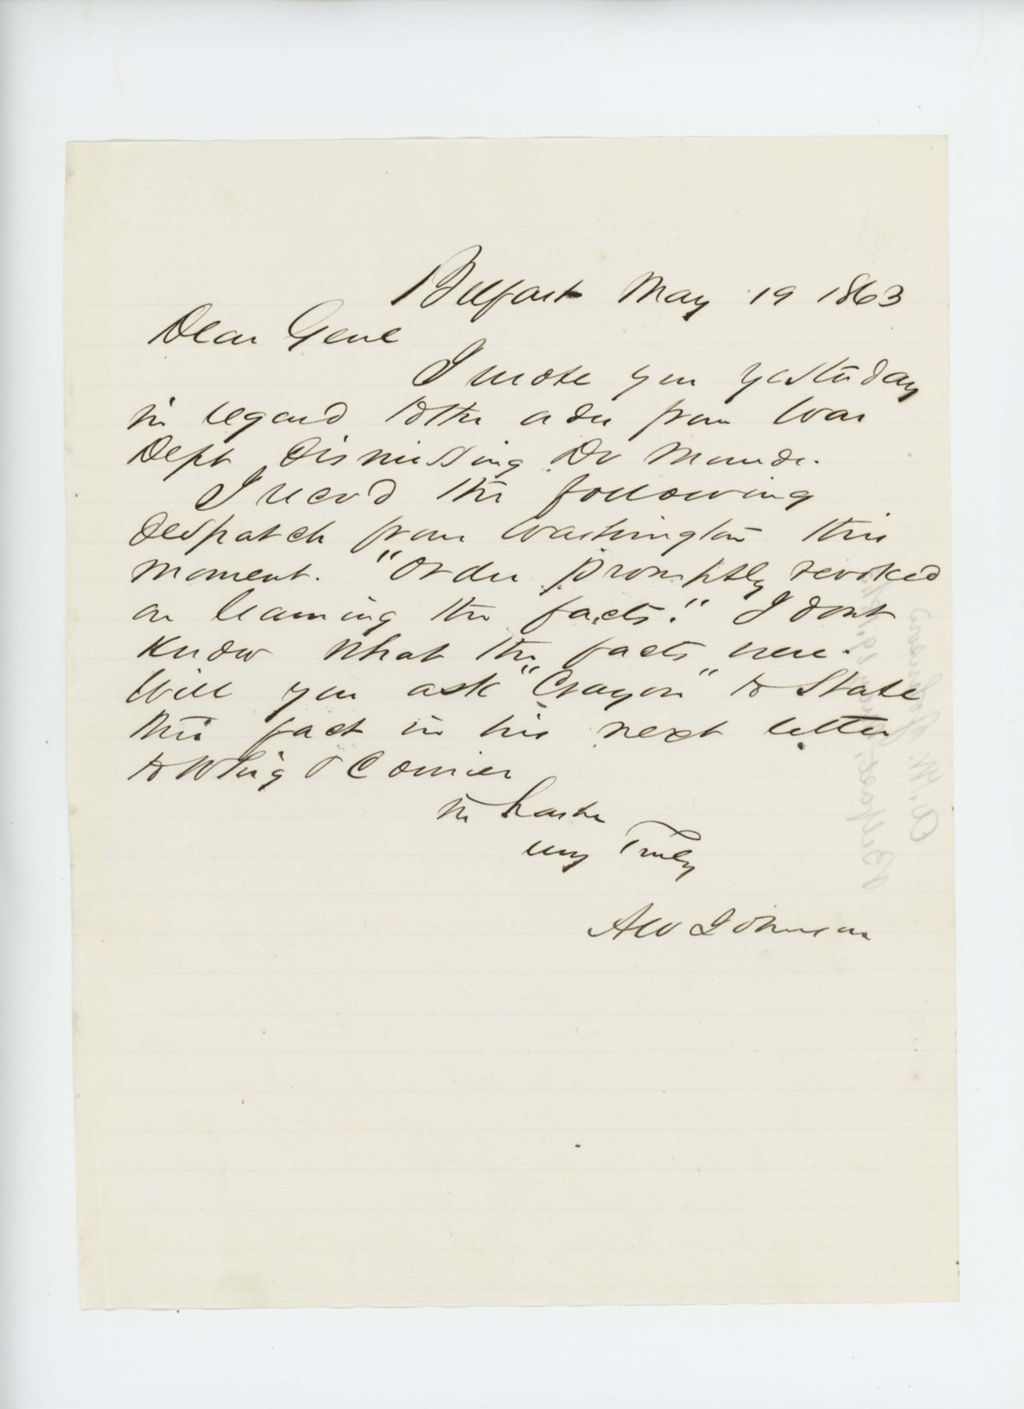 Belfast May 19 1863
Dear Gene
I wrote you yesterday
in regard to the order from War
Dept dismissing Dr
I rec'd the following
despatch from Washington this
moment. "Order promptly revoked
on learning the facts." I dont
know what the facts were.
Will you ask "Crayon" to State
this fact in his next letter
to Whig & Courier
In haste
very Truly
AW Johnson
Belfast